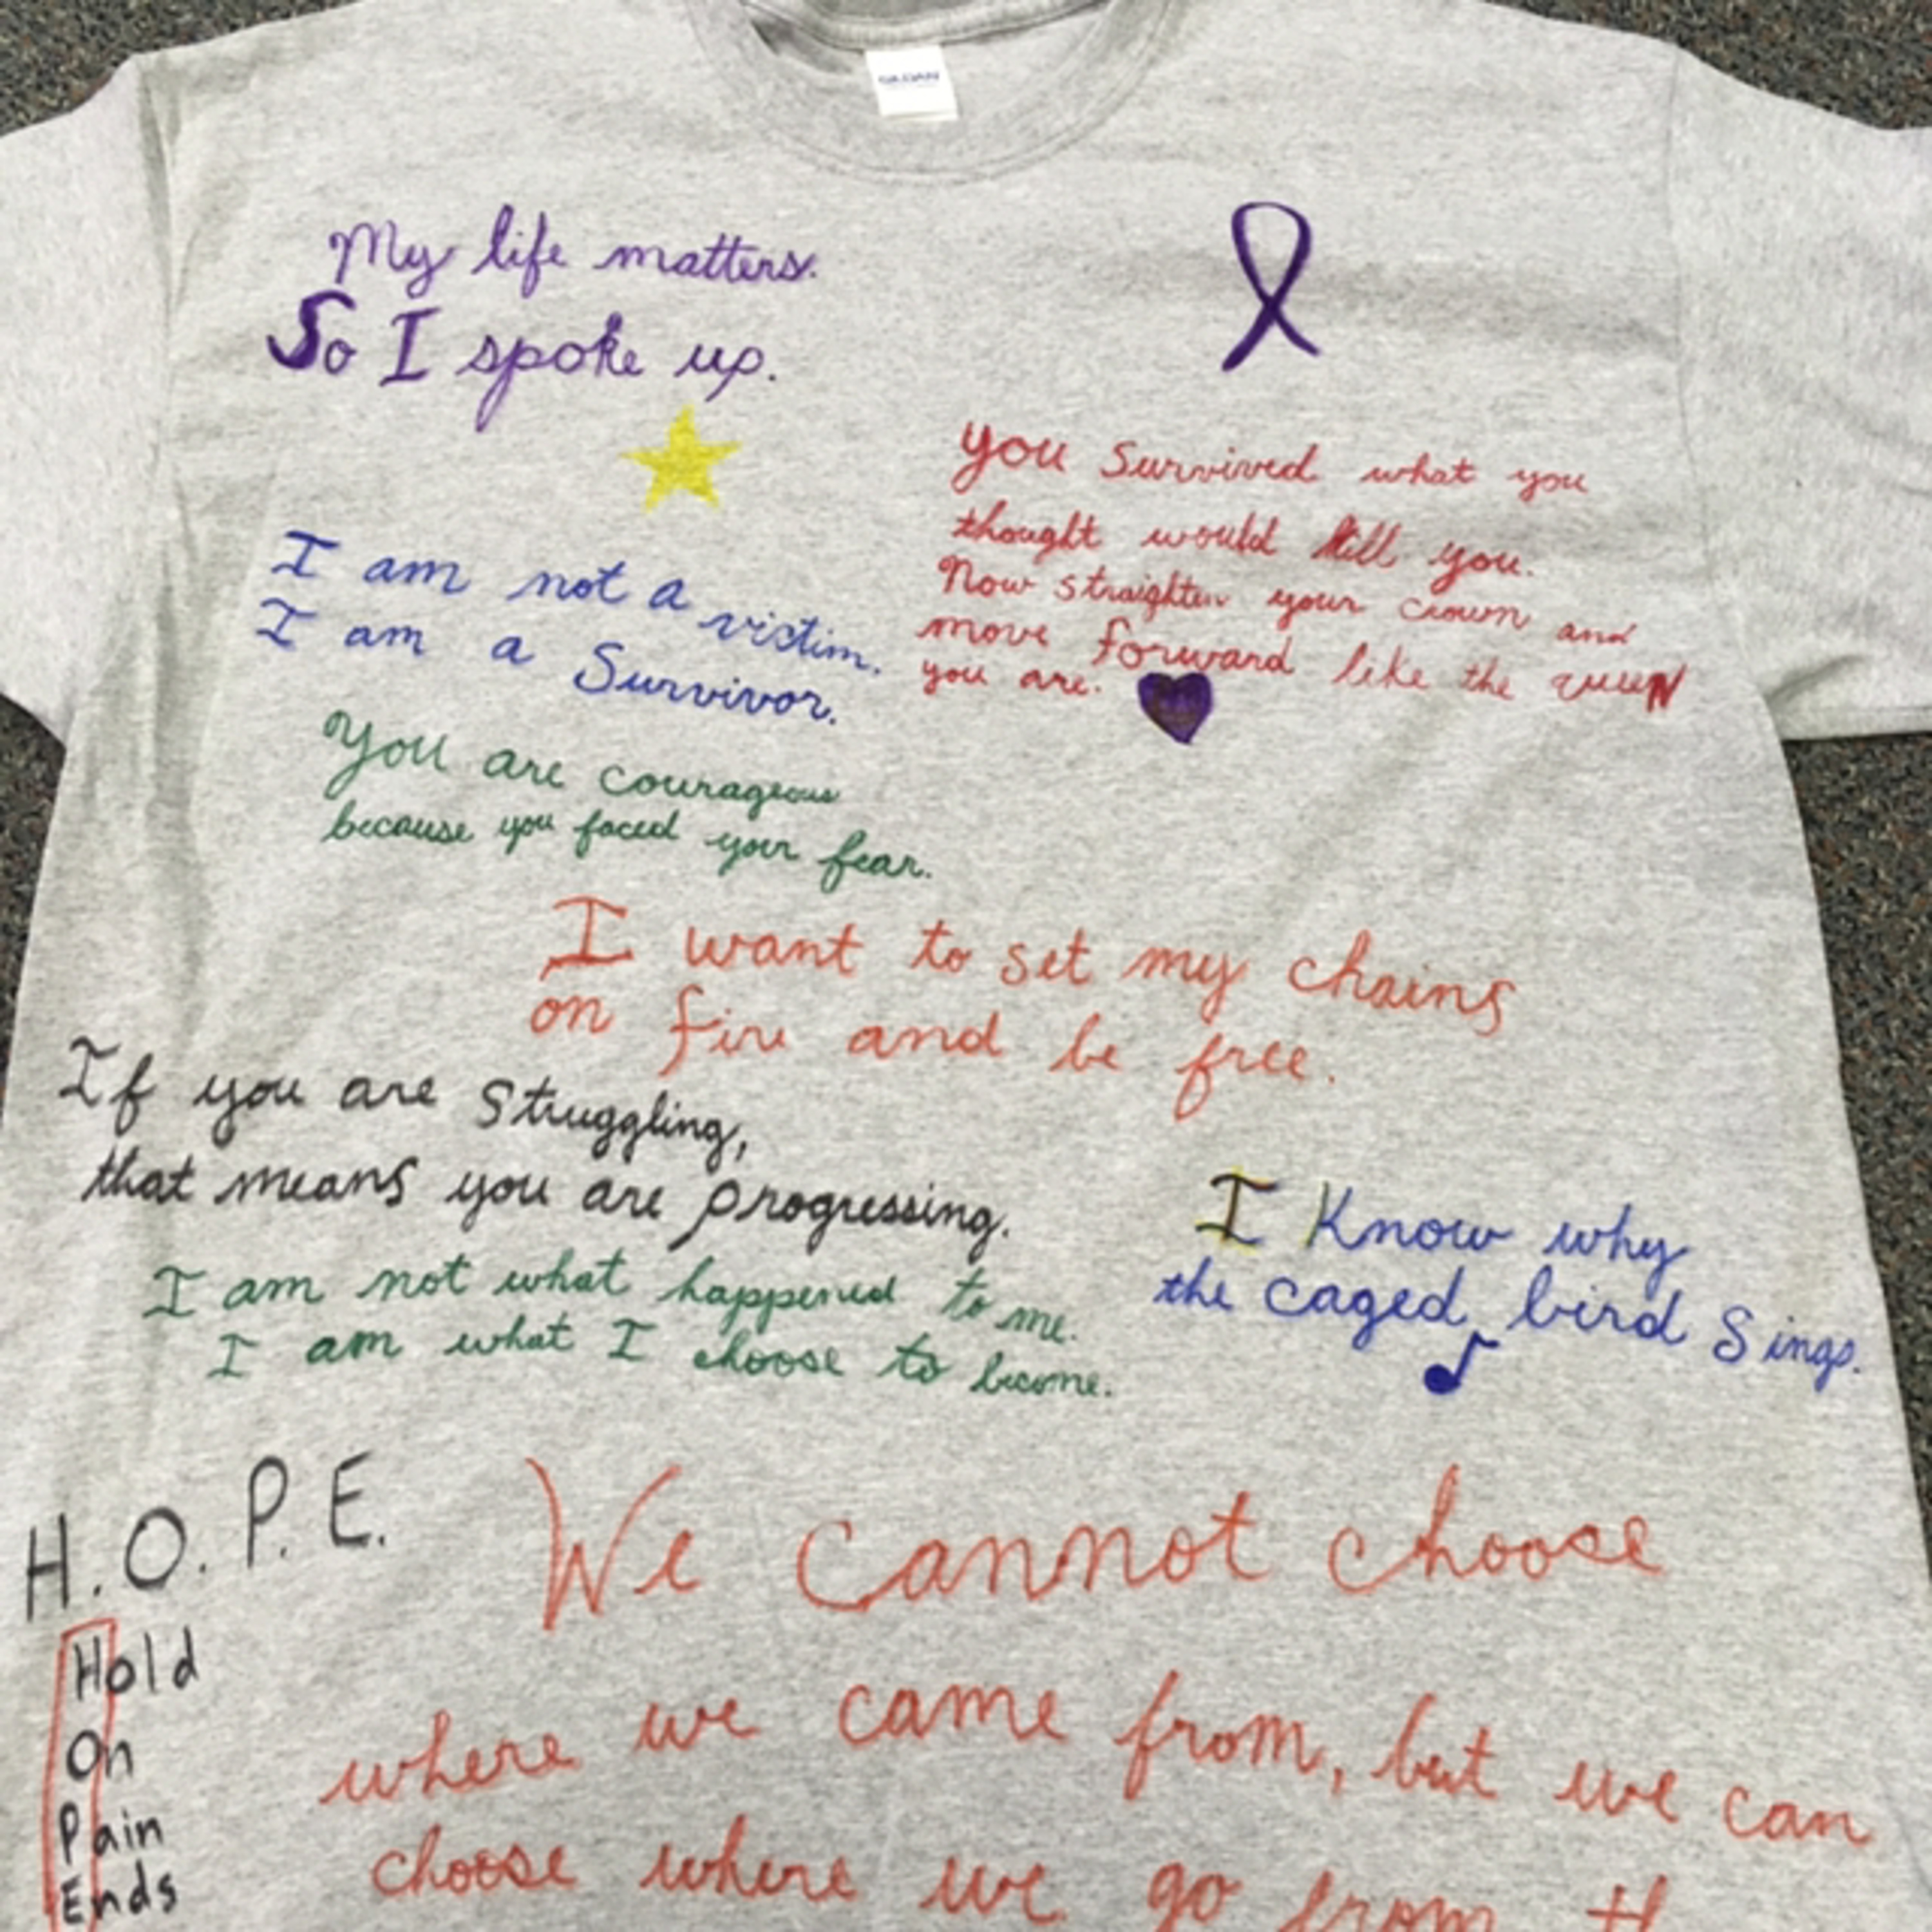 GILDAN
My life matters.
So I spoke up.
you survived what you
thought would kill you.
Now straighten your crown and
move forward like the queeN
you are.
I am not a victim.
I am a Survivor.
You are courageous
because you faced your fear.
I want to set my chains
on fire and be free.
If you are struggling,
that means you are progressing.
I am not what happened to me.
I am what I choose to become.
I Know why
the caged bird sings.
H.O.P.E.
Hold
On
Pain
Ends
We cannot choose
where we came from, but we can
choose where we go from